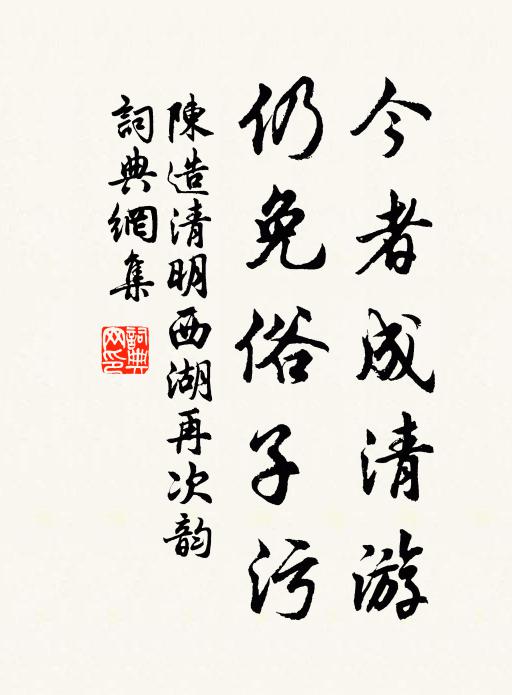 今者成清游
仍免俗子污
陳造清明西湖再次韵
詞典網集
詞典
网印